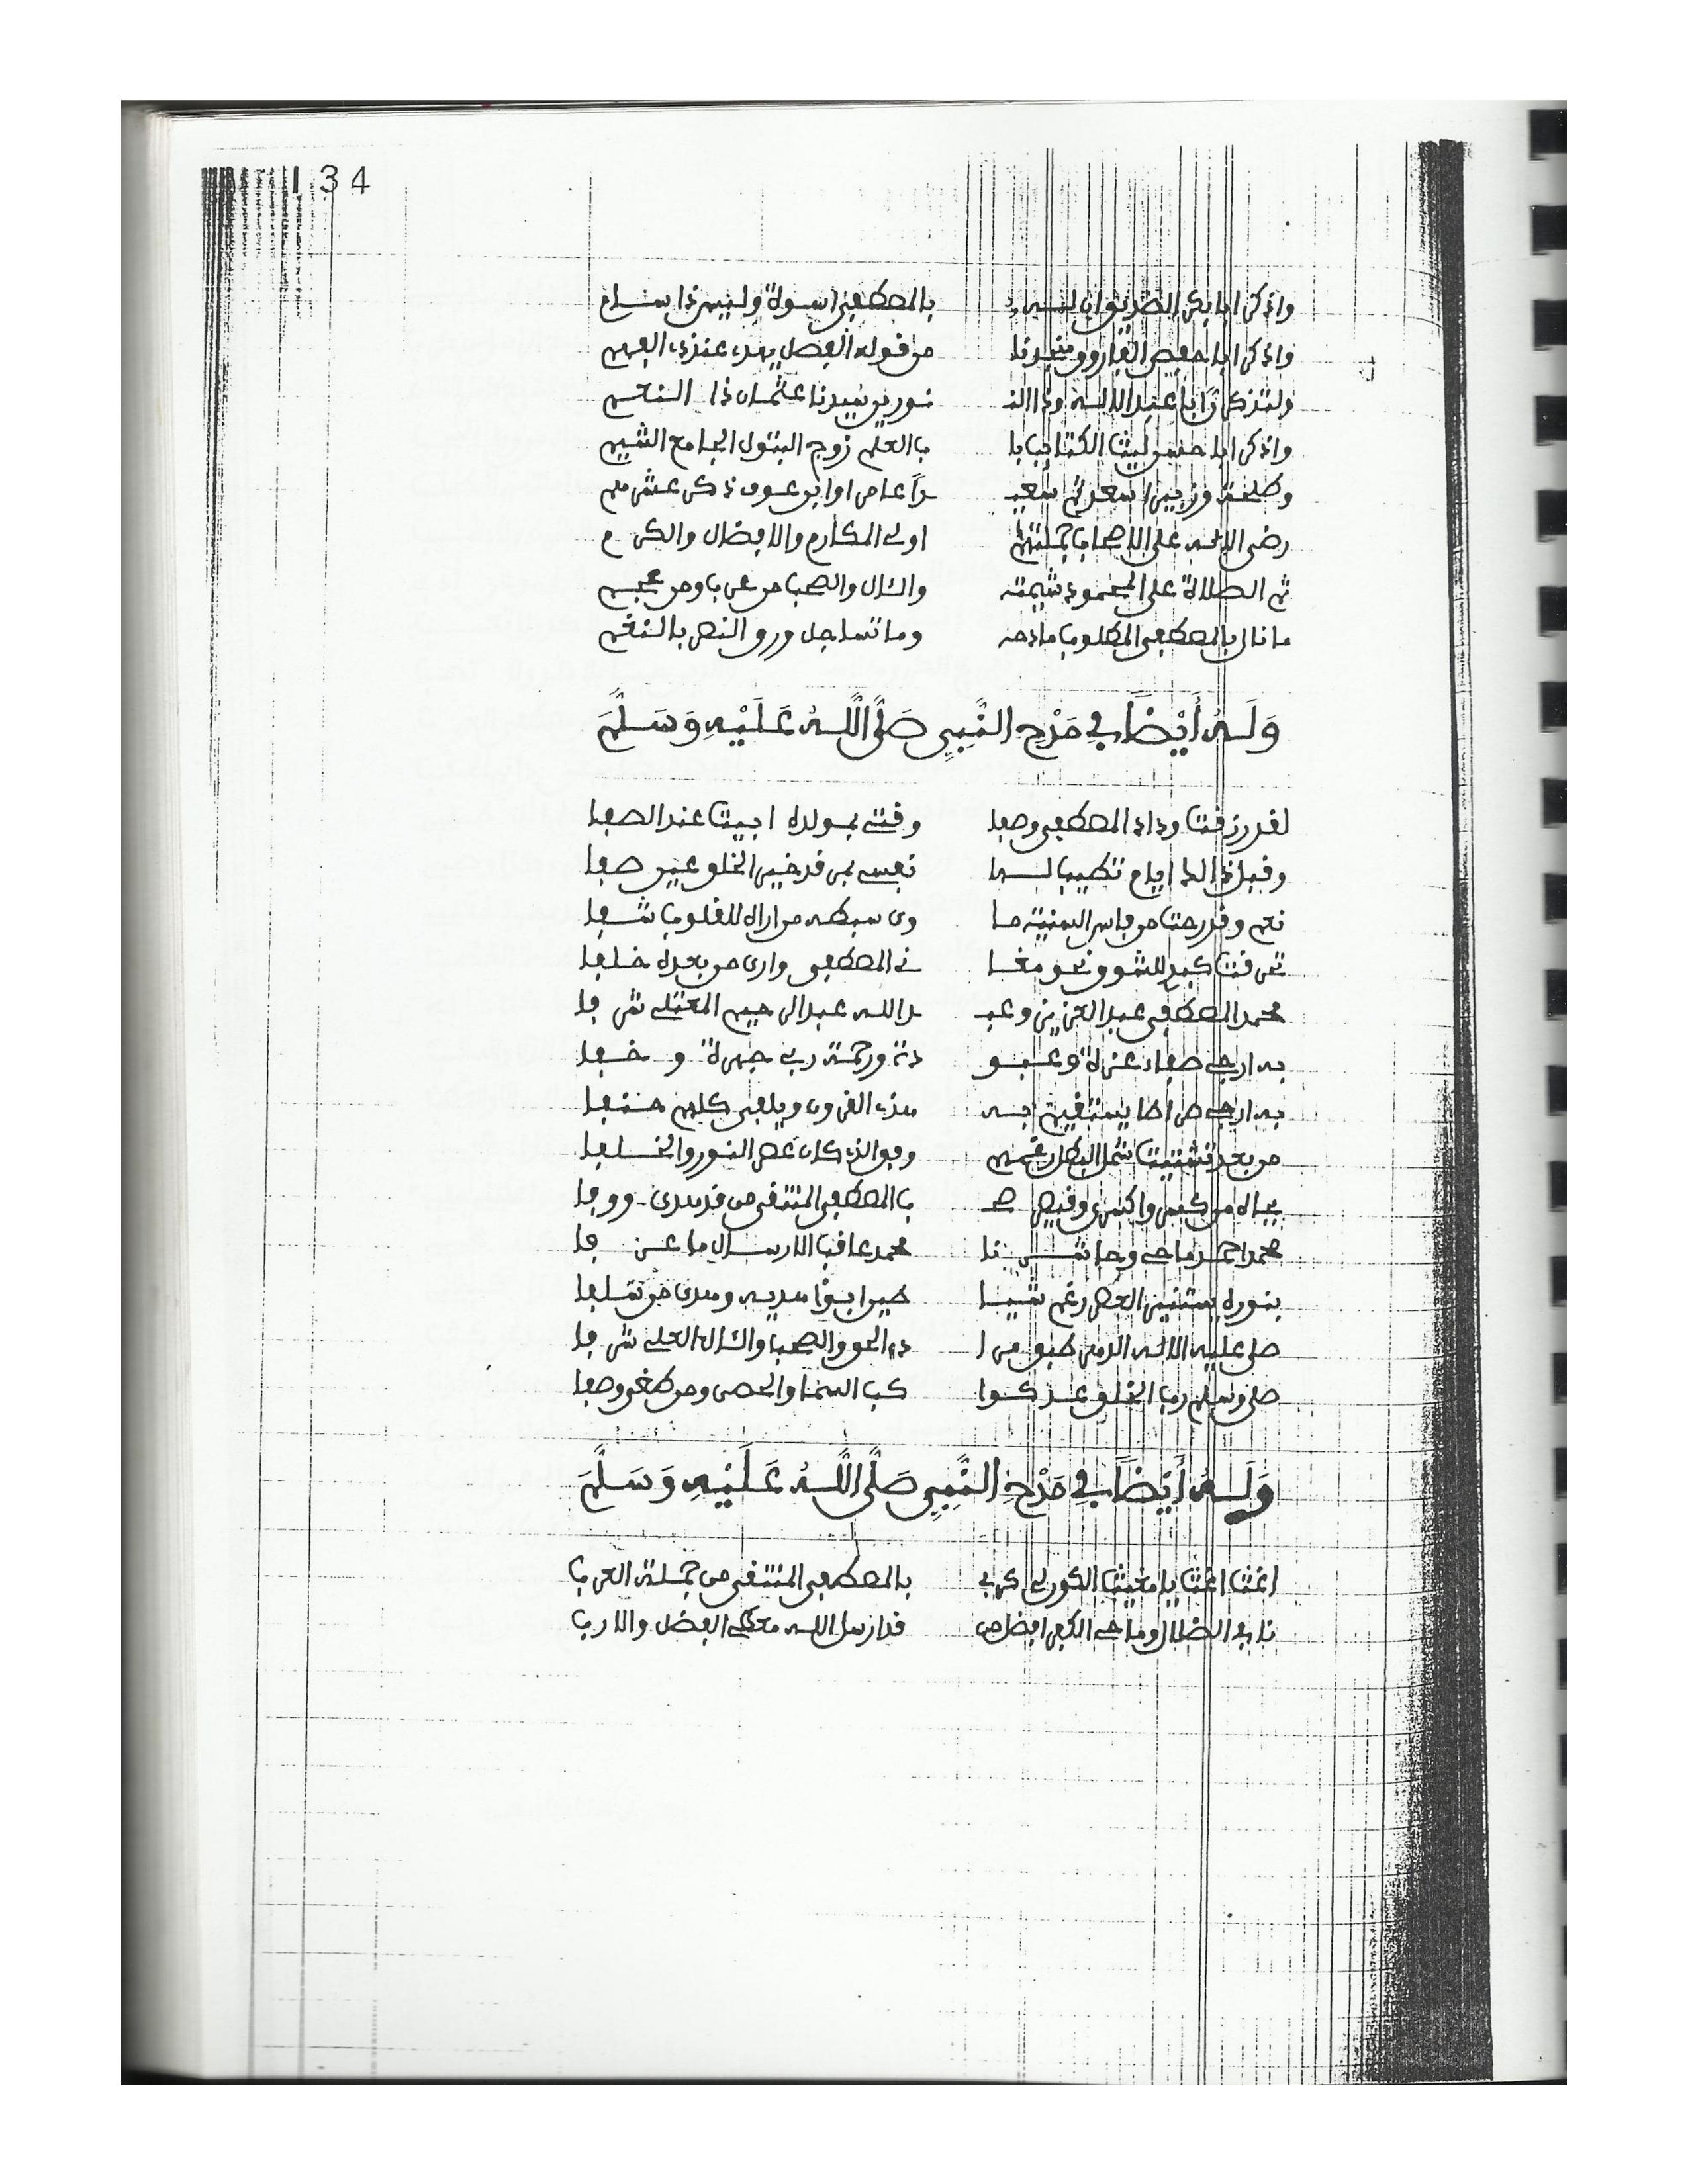 134
واذكر ابا بكر الصديق ان لــه بالمصطفى اسوة وليس ذا سـام
واذكر ابا حفص الفاروق من قوله الفصل يهدى عند ذى الفهم
ولتذكر ابا عبد الالــه وذا النـ ـورين سيدنا عثمان ذا النعم
واذكر ابا حسن ليث الكتائب با ب العلم زوج البتول الجامع الشيم
وطلحة وزبيرا سعد ثم سعيـ ـدا عامرا وابن عوف ذكر عشرهم
رضى الاله على الاصحاب جملتهم اولى المكارم والافضال والكرم
ثم الصلاة على المحمود شيمته والئال والصحب من عرب ومن عجم
ما نال بالمصطفى المطلوب مادحه وما تساجل ورق النصر بالنغم
وَلَــهُ أَيْضًا فِى مَدْحِ النَّبِىِ صَلَّى اللَّــهُ عَلَيْهِ وَسَلَّمَ
لقد رزقت وداد المصطفى وصفا وقتى بمولده ابيت عند الصفا
وقبل ذا لذا ايام تطيب لــها نفسى بمن قد خير الخلق عيـن صفا
نعم وقد رحت من فاس السنية مـا وى سبطه من اراه للقلوب شــفا
تحرقت كبدى للشوق نحو مغـا نى المصطفى وارى من بعده خلفا
محمد المصطفى عبد العزيز وعبـ ـد اللــه عبد الرحيم المعتلى شرفا
به ارجى صفاء عزة وعـبـو دة ورحمة ربى جهرة و خـفا
به ارجى صراطا يستقيم بــه هذى القرون ويلفى كلهم حـنفا
من بعد تشتيت شمل البطل رغمهم وفق الذى كان عصر النور والخـلفا
بجاه من كسر اكسرى وقيصر صـ ـب المصطفى المنتقى من قد هدى ووفا
محمد احمد ماحى وحاشــرنا محمد عاقب الارســال ما عــرفا
بنوره يستنير العصر رغم شيـا طين ابوا هديه وهدى من سلفا
صلى عليه الالــه الدهر طبق مرا د الحق والصحب والئال العلى شرفا
صلى وسلم رب الخلق عـد كـوا كب السما والحصى ومن طغى وصفا
وَلَــهُ أَيْضًا فِى مَدْحِ النَّبِىِ صَلَّى اللَّــهُ عَلَيْهِ وَسَلَّمَ
اغثنا اغثنا يا مغيث الكون لى كربى بالمصطفى المنتقى من جملة العرب
نافى الضلال وماحى الكفر افضل من قد ارسل اللــه معطى الفضل والارب